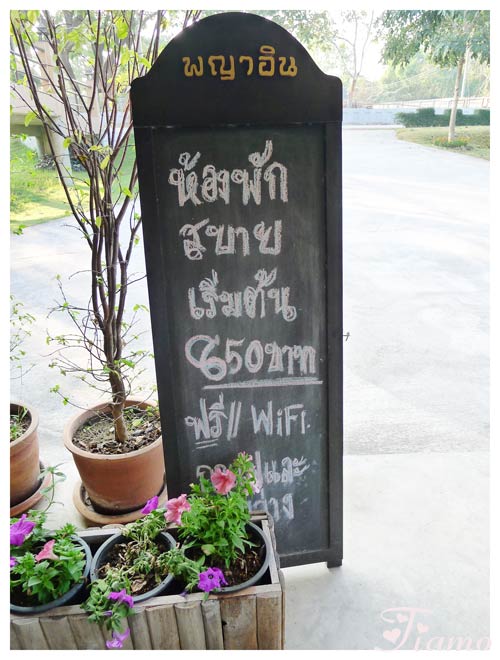 พญาอิน
ห้องพัก
สบาย
เริ่มต้น
850บาท
ฟรี// WiFi
และ
ว่าง
Tiamo